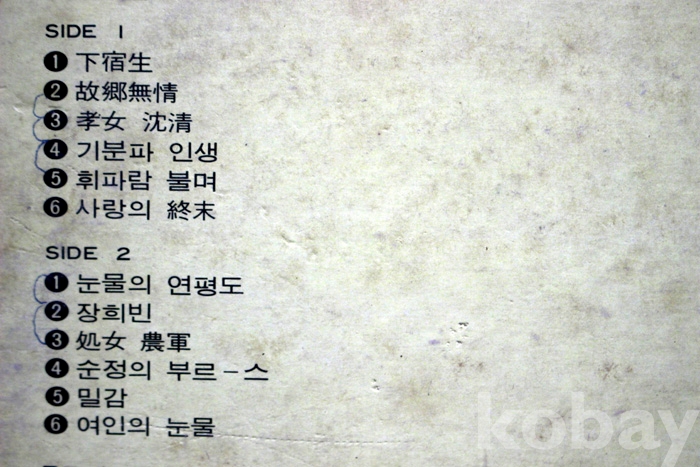 SIDE 1
❶ 下宿生
❷ 故郷無情
❸ 孝女 沈清
❹ 기분파 인생
❺ 휘파람 불며
❻ 사랑의 終末
SIDE 2
❶ 눈물의 연평도
❷ 장희빈
❸ 処女 農軍
❹ 순정의 부르–스
❺ 밀감
❻ 여인의 눈물
kobay